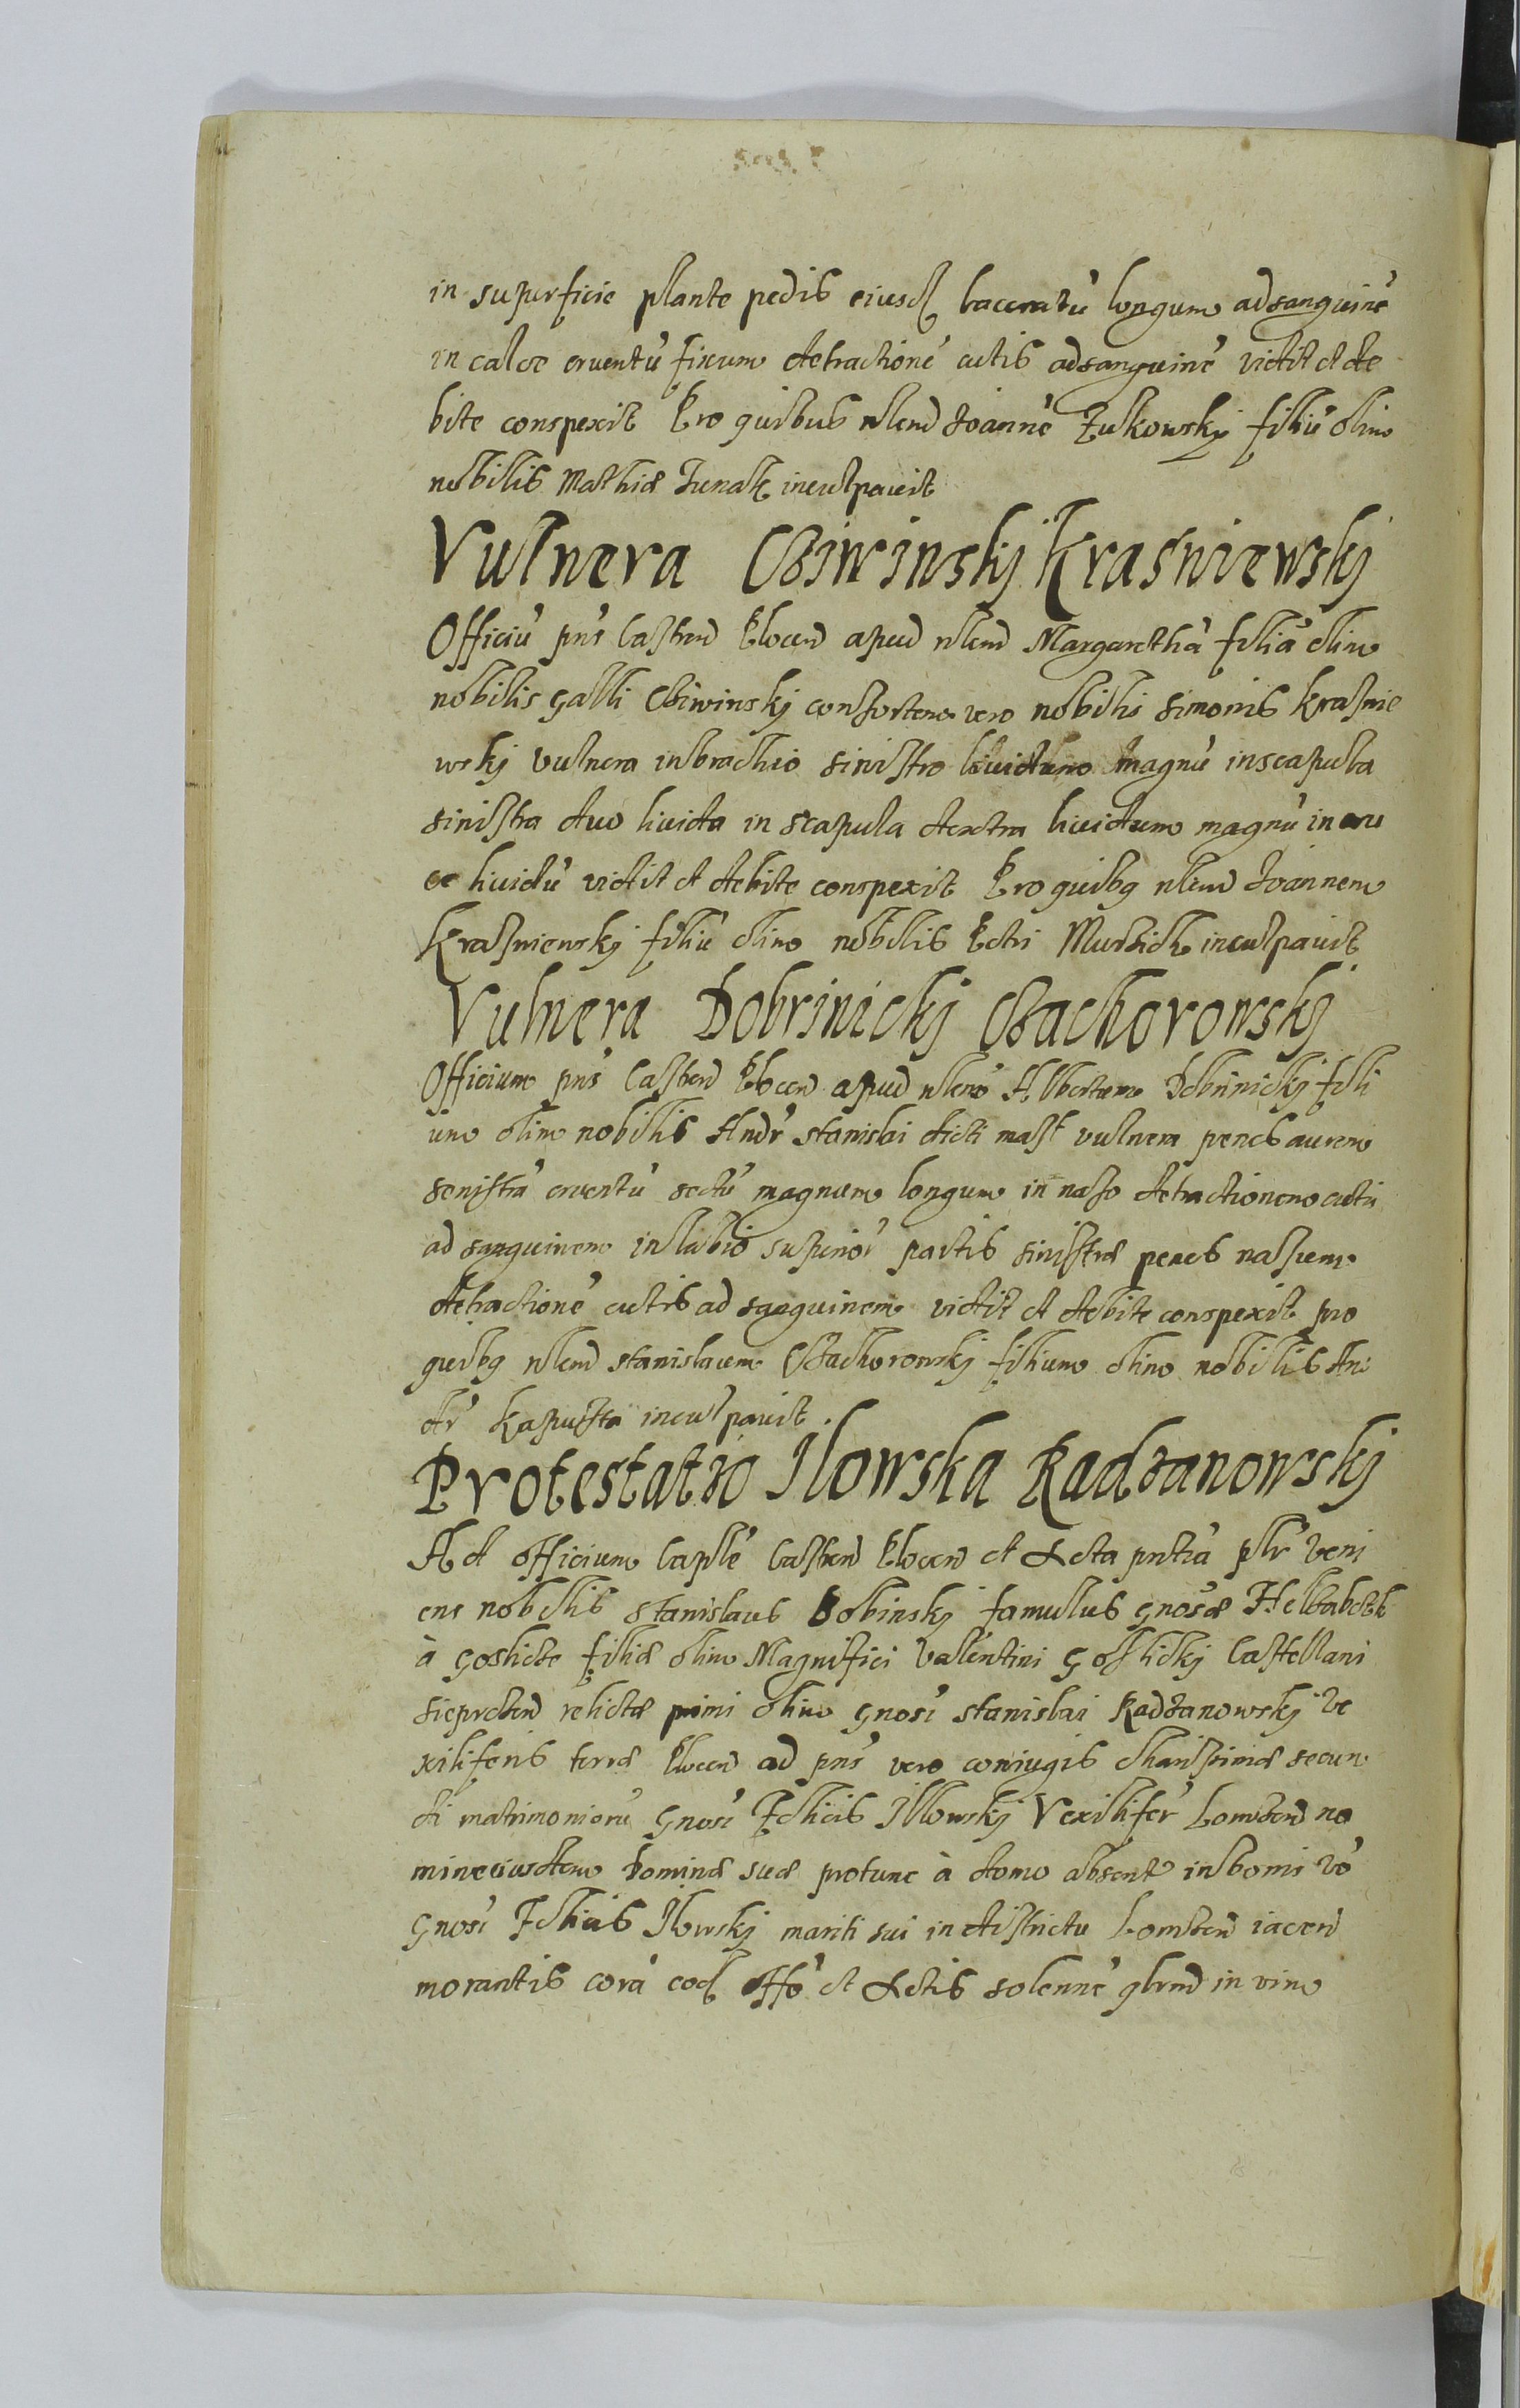 in superficie plante pedis eiusd laceratū longum ad sanguinē
in calce cruentū fixum detractionē cutis ad sanguinē vidit et de
bite conspexit Pro quibus nlem Joannē Zukowsky filiū olim
nobilis Mathiæ inculpavit
Vulnera Cziwinskj Krasniewskj
Officiū pns Castren Plocen apud nlem Margarethā filiā olim
nobilis Galli Cziwinskj consortem vero nobilis Simonis Krasnie
wskj vulnera in brachio sinistro lividum magnū in scapula
sinistra duo livida in scapula dextra lividum magnū in cru
re lividū vidit et debite conspexit Pro quibq nlem Joannem
Krasniewskj filiū olim nobilis Petri inculpavit
Vulnera Dobrinickj Czachorowskj
Officium pns Castren Plocen apud nlem Albertum Dobrinickj fili
um olim nobilis Andr Stanislai dicti vulnera penes aurem
senistrā cruentū sectū magnum longum in naso detractionem cutis
ad sanguinem in labio superior partis sinistræ penes nasum
detractionē cutis ad sanguinem vidit et debite conspexit pro
quibq nlem Stanislaum Czachorowskj filium olim nobilis An
dr Kapusta inculpavit
Protestatio Ilowska Radzanowskj
Ad officium Caplē Castren Plocen et Acta pntiā plr veni
ens nobilis Stanislaus Sobinskj famulus Gnosæ Helzabeth
à Goslicze filiæ olim Magnifici Valentini Goslickj Castellani
Sieprcen relictæ primi olim Gnosi Stanislai Radzanowskj ve
xiliferis terræ Plocen ad pns vero coniugis charissimæ secun
di matrimoniorū Gnosi Fœlicis Illowskj Vexilifer no
mine eiusdem Dominæ suæ protunc à domo absent in bonis vō
Gnosi Fœlicis Ilowskj mariti sui in districtu iacen
morantis corā eod Offō et Actis solennē qlrnd in vim